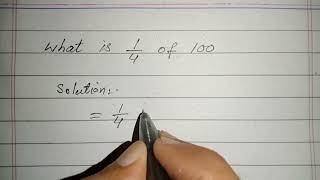 What is 1/4 of 100
Solution:-
= 1/4